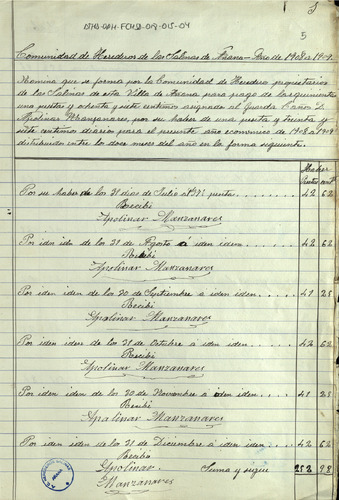 5
Comunidad de Herederos de las Salinas de Añana — Año de 1908 a 1909.
Nomina que se forma por la Comunidad de Herederos propietarios
de las Salinas de esta Villa de Añana, para pago de las quinientas
una pesetas y ochenta y siete centimos asignado al Guarda Caños D.
Apolinar Manzanares, por su haber de una peseta y treinta y
siete centimos diarios para el presente año economico de 1908 a 1909
distribuidos entre los doce meses del año en la forma siguiente.
Haber
Pesetas cents
Por su haber de los 31 dias de Julio a 1'375 pesetas . . . 42 62
Recibi
Apolinar Manzanares
Por idén idn de los 31 de Agosto a iden iden . . . 42 62
Recibi
Apolinar Manzanares
Por iden iden de los 30 de Septiembre á iden iden . . . 41 25
Recibi
Apolinar Manzanares
Por iden iden de los 31 de Octubre á iden iden . . . 42 62
Recibi
Apolinar Manzanares
Por iden iden de los 30 de Noviembre a iden iden . . . 41 25
Recibi
Apolinar Manzanares
Por iden iden de los 31 de Diciembre á iden iden . . . 42 62
Recibo
Apolinar
Manzanares
Suma y sigue 252 98